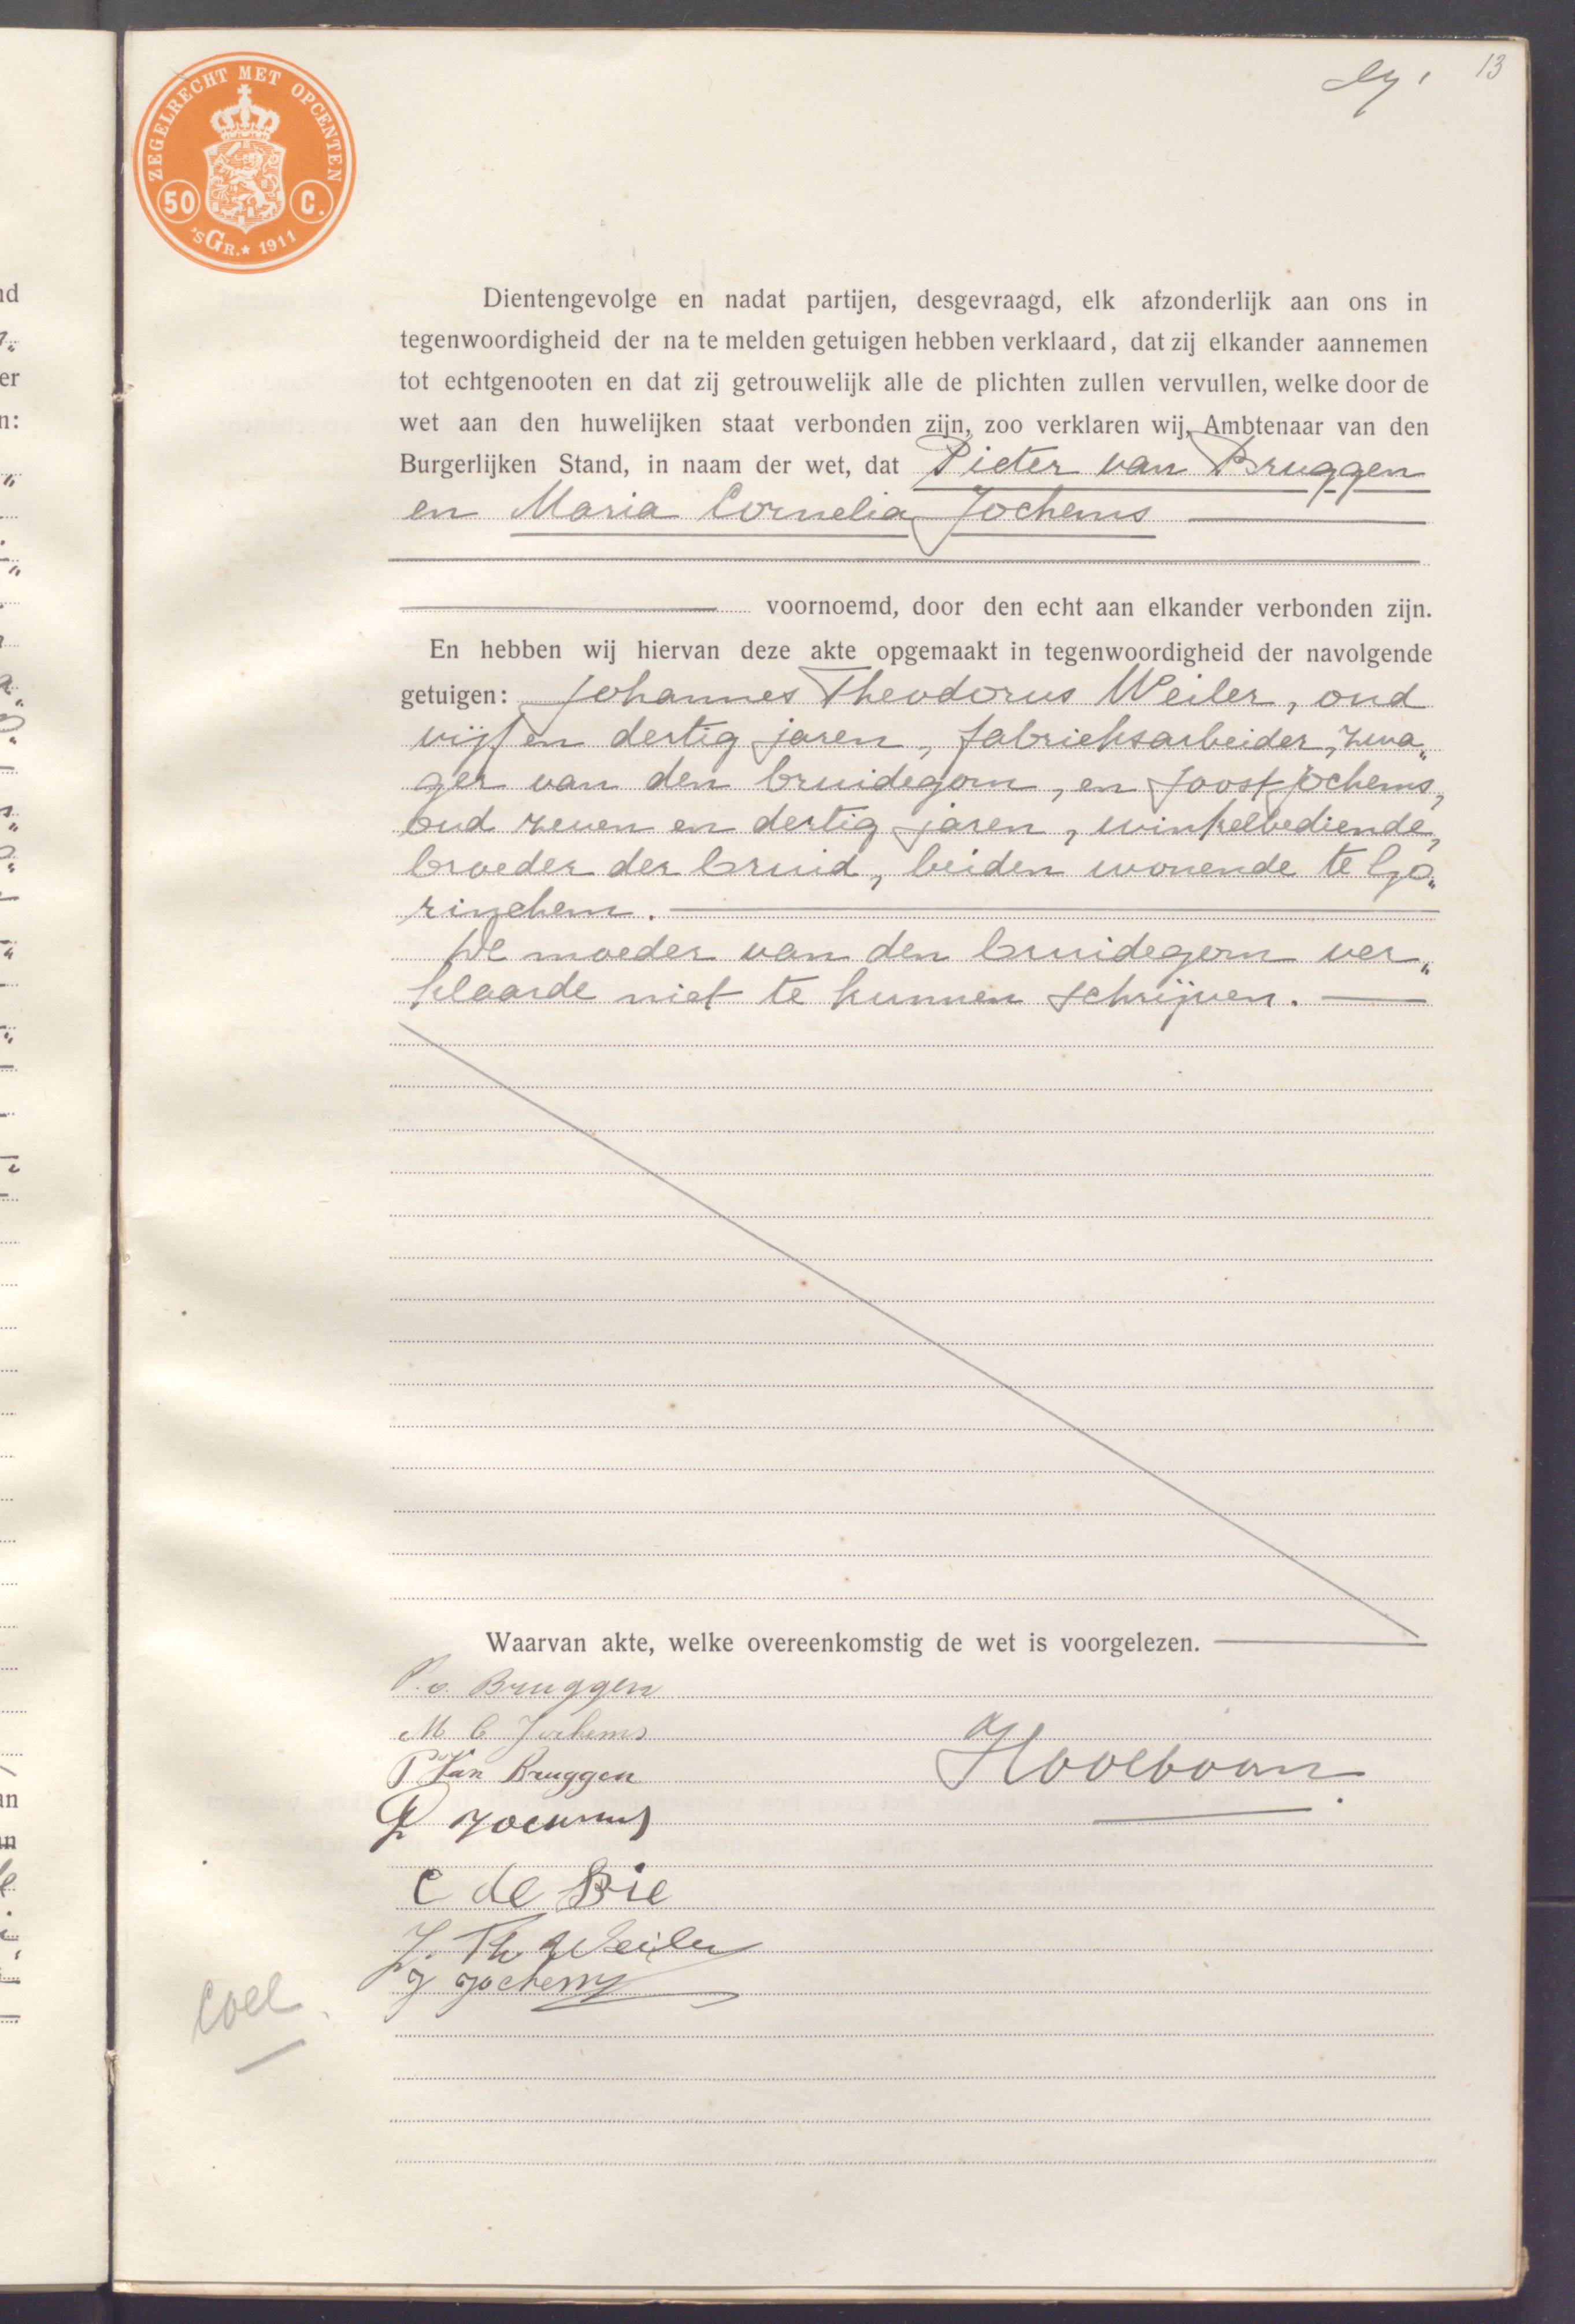 13
ZEGELRECHT MET OPCENTEN
50 C.
'sGR.★ 1911
Dientengevolge en nadat partijen, desgevraagd, elk afzonderlijk aan ons in
tegenwoordigheid der na te melden getuigen hebben verklaard, dat zij elkander aannemen
tot echtgenooten en dat zij getrouwelijk alle de plichten zullen vervullen, welke door de
wet aan den huwelijken staat verbonden zijn, zoo verklaren wij, Ambtenaar van den
Burgerlijken Stand, in naam der wet, dat Pieter van Bruggen
en Maria Cornelia Jochems
voornoemd, door den echt aan elkander verbonden zijn.
En hebben wij hiervan deze akte opgemaakt in tegenwoordigheid der navolgende
getuigen: Johannes Theodorus Weiler, oud
vijf en dertig jaren, fabrieksarbeider, zwa„
ger van den bruidegom, en Joost Jochems,
oud zeven en dertig jaren, winkelbediende,
broeder der bruid, beiden wonende te Go„
rinchem.
De moeder van den bruidegom ver„
klaarde niet te kunnen schrijven.
Waarvan akte, welke overeenkomstig de wet is voorgelezen.
P. v. Bruggen
M C Jochems
P Van Bruggen
Hoolboom
Jochems
C de Bie
J. Th Weiler
J Jochems
Coll.